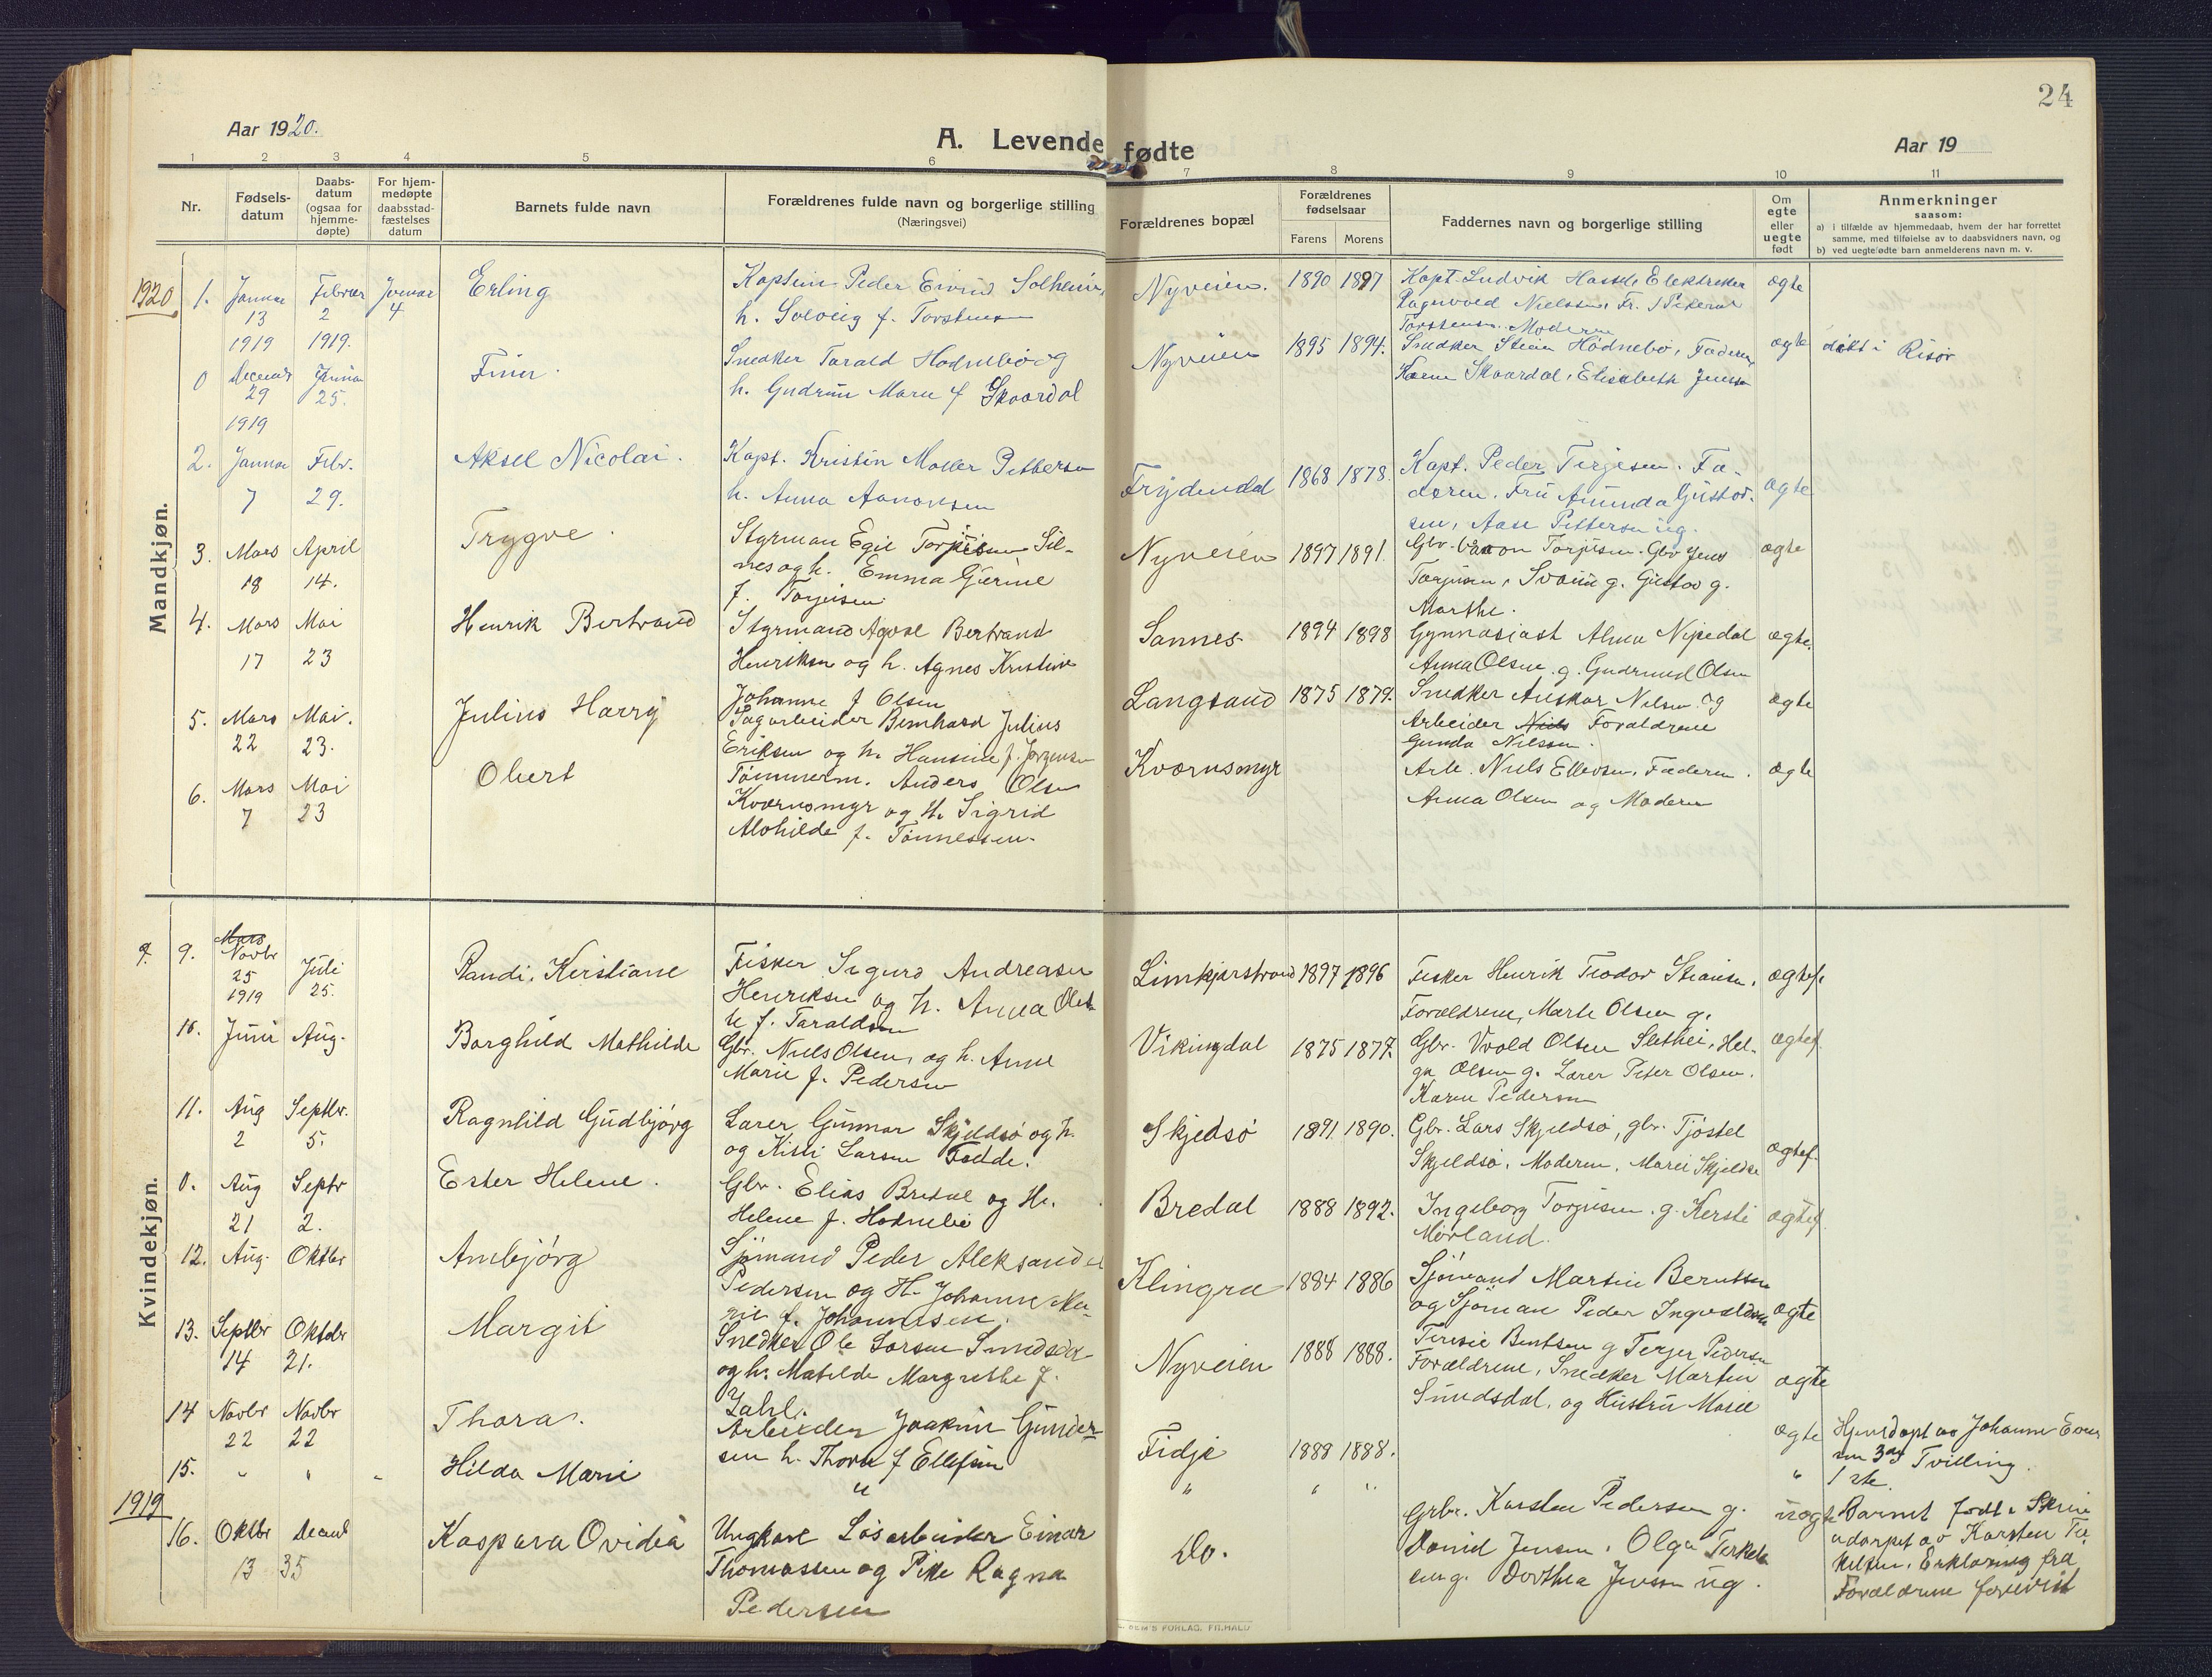 24
Aar 1920.
A. Levende fødte
Aar 19
1 2 3 4 5 6 7 8 9 10 11
Nr.
Fødsels-
datum
Daabs-
datum
(ogsaa for
hjemme-
døpte)
For hjem-
medøpte
daabsstad-
fæstelses
datum
Barnets fulde navn
Forældrenes fulde navn og borgerlige stilling
(Næringsvei)
Forældrenes bopæl
Forældrenes
fødselsaar
Farens Morens
Faddernes navn og borgerlige stilling
Om
egte
eller
uegte
født
Anmerkninger
saasom:
a) i tilfælde av hjemmedaab, hvem der har forrettet
samme, med tilføielse av to daabsvidners navn, og
b) ved uegte fødte barn anmelderens navn m. v.
Mandkjøn.
1920
1.
Januar
13
1919
Februar
2
1919.
Januar
4
Erling
Kaptein Peder Eivind Solheim,
h. Solveig f. Torstensen
Nyveien.
1890 1897
Kapt. Ludvik Hassel, Elektriker
Ragnvald Nielssen, Fr.
Torstensen. Moderen
ægte
0
Decembr
29
1919
Januar
25.
Finn.
Snedker Tarald Hødnebø og
h. Gudrun Marie f Skaardal
Nyveien
1895 1894.
Snedker Steien Hødnebø, Faderen,
Skaardal, Elisabeth Jensen
ægte
døbt i Risør
2.
Januar
7
Febr.
29.
Aksel Nicolai.
Kapt. Kristin Møller Pettersen
h. Anna Aanonsen
Frydendal
1868 1878.
Kapt. Peder Terjesen. Fa-
deren. Fru Amunda Gustav-
sen, Aase Pettersen ug.
ægte
3.
Mars
18
April
14.
Trygve.
Styrman Egil Torjusen Sil-
nes og h. Emma Gurine
f. Torjusen
Nyveien
1897 1891.
Gbr. Aanon Torjusen. Gbr Jens
Torjusen, Svanu g. Gustav g.
Marthe.
ægte
4.
Mars
17
Mai
23
Henrik Bertrand
Styrmand Agvol Bertrand
Henriksen og h. Agnes Kristine
Johanne f Olsen
Sannes
1894 1898
Gymnasiast Alma Nipedal
Anna Olsen g. Gudmund Olsen
ægte.
5.
Mars
22
Mai.
23.
Julius Harry
Sagarbeider Bernhard Julius
Eriksen og h. Hansine f. Jørgensen
Langsand
1875 1879.
Snedker Anskar Nilsen og
Arbeider Foraldrene
Gunda Nilsen.
ægte
6.
Mars
7
Mai
23
Obert
Tømmerm. Anders Olsen
Kværnsmyr og H. Sigrid
Alohilde f. Tønnessen.
Kværnsmyr
Arb. Niels Ellevsen. Faderen.
Anna Olsen og Moderen
ægte
Kvindekjøn.
9.
Mars
Novbr
25
1919
Juli
25.
Randi Kristiane
Fisker Sigurd Andreasen
Henriksen og h. Anna Olet-
te f. Taraldsen
Limkjærstrand
1897 1896
Fisker Henrik Teodor Steansen.
Forældrene, Marte Olsen g.
ægtef.
10.
Juni
Aug.
Borghild Mathilde
Gbr. Niels Olsen, og h. Anne
Marie f. Pedersen
Vikingdal
1875 1877.
Gbr. Vrold Olsen Slethei, Hel-
ga Olsen g. Lærer Peter Olsen.
Karen Pedersen
ægtef.
11.
Aug
2
Septbr.
5.
Ragnhild Gudbjörg
Lærer Gunnar Skjeldsø og h.
og Kisti Larsen Fodde.
Skjedsö
1891. 1890.
Gbr. Lars Skjeldsø, gbr. Tjöstel
Skjeldsö. Moderen. Marei Skjeldsø
ægtef.
0.
Aug
21
Septbr
2.
Ester Helene.
Gbr. Elias Bredal og H.
Helene f. Hødnebø
Bredal
1888 1892.
Ingeborg Torjusen g. Kersti
Mørland.
ægtef.
12.
Aug.
Oktbr
Ambjörg
Sjømand Peder Aleksander
Pedersen og H. Johanne Ma-
rie f. Johannesen.
Klingra
1884 1886
Sjømand Martin Berntsen
og Sjøman Peder Ingvaldsen
Teresie Bentsen g Terjer Pedersen
ægte
13.
Septbr
14
Oktobr
21.
Margit
Snedker Ole Larsen Sundsdal
og h. Matilde Margrethe f.
Zahl.
Nyveien
1888 1888.
Forældrene, Snedker Martin
Sundsdal, og Hustru Marie
ægte
14
Novbr
22
Novbr
22
Thora.
Arbeider Joakim Gunder-
sen h. Thora f Ellefsen
Fidje
1888 1888.
ægte
Hjemdøpt av Johanne
Tvilling.
1 ste.
15.
" "
Hilda Marie
"
"
" "
"
1919
16.
Oktbr
13
Decemb
35
Kaspara Ovidia
Ungkarl Løsarbeider Einar
Thomassen og Pike Ragna
Pedersen
Do.
Grbr. Karsten Pedersen g.
David Jensen. Olga Terkel-
sen g. Dorthea Jensen ug.
uægte
Barnet født i Skien
adopt. av Karsten
Erklæring fra
Forældrene forevist
SEM'S FORLAG, FR.HALD